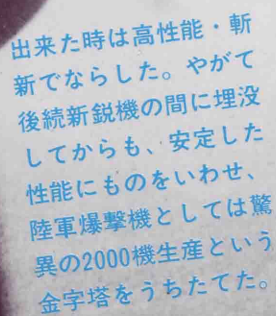 出来た時は高性能・斬
新でならした。やがて
後続新鋭機の間に埋没
してからも、安定した
性能にものをいわせ、
陸軍爆撃機としては驚
異の2000機生産という
金字塔をうちたてた。